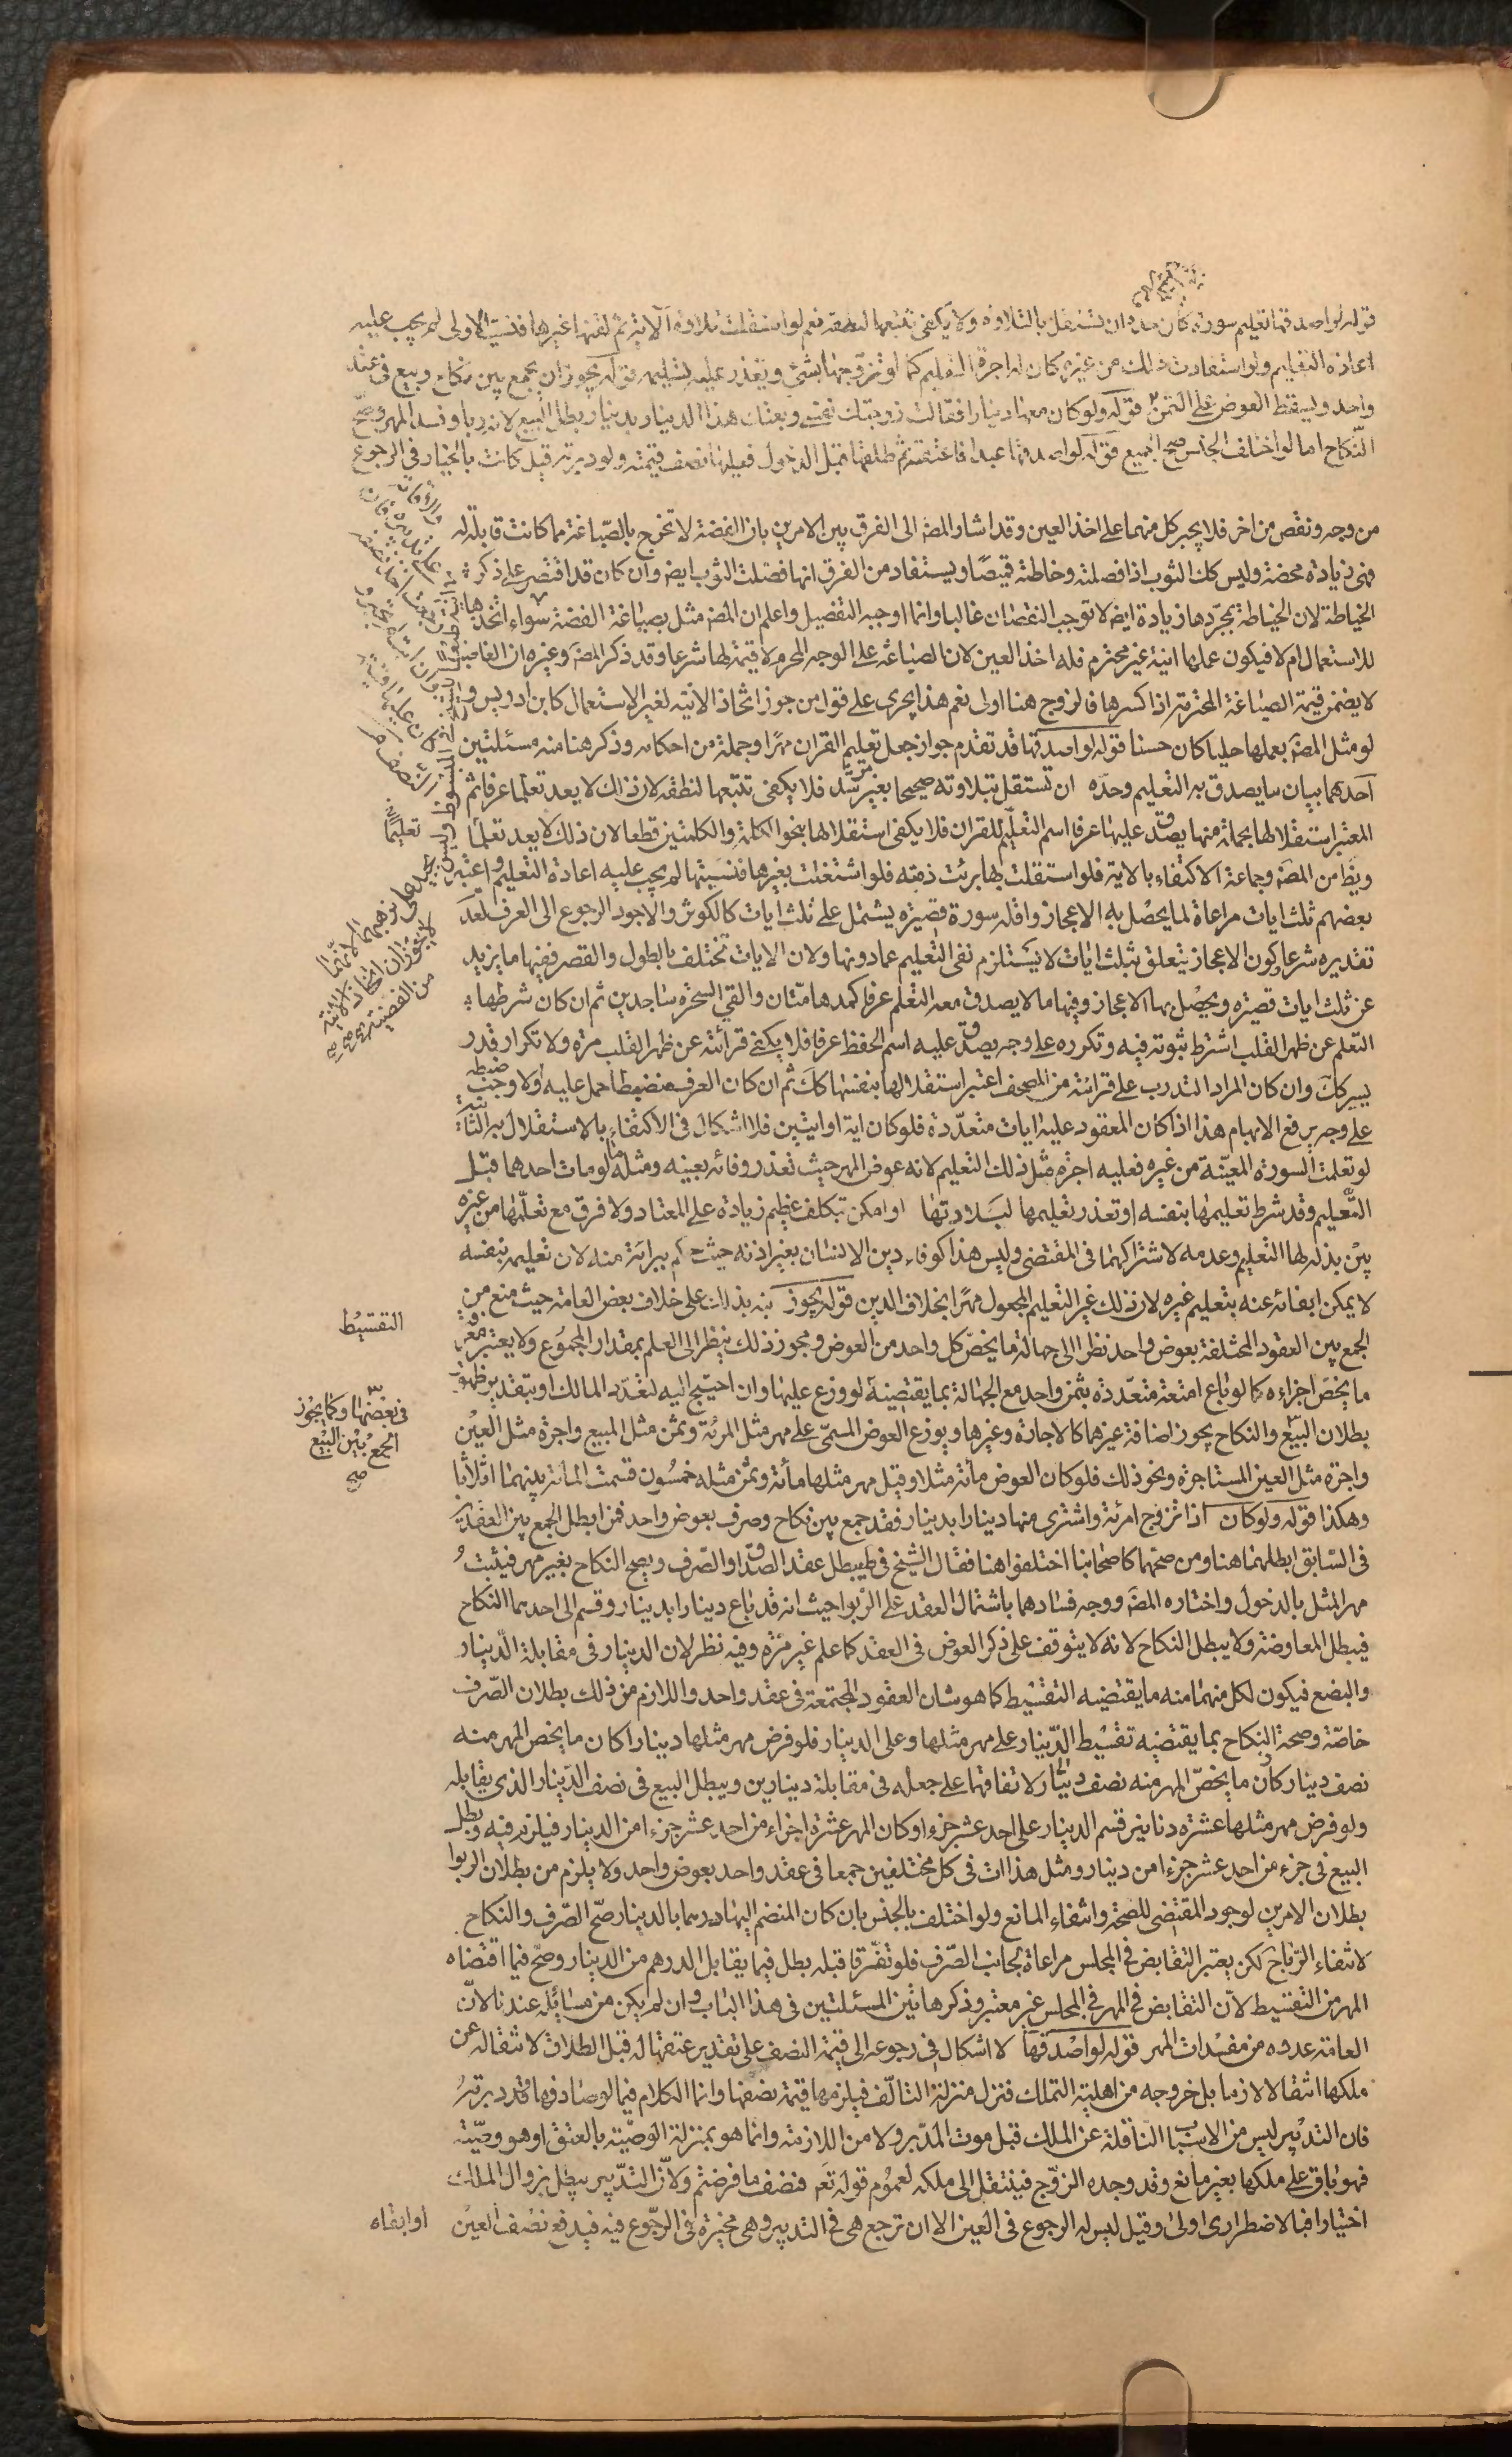 قوله لو اصدقها تعليم سورة كان حده ان تستقل بالتلاوة ولا يكفي تتبعها لنطقه نعم لو استقلت بتلاوة الاية ثم لقنها غيرها فنسيت الاولى لم يجب عليه
اعادة التعليم ولو استفادت ذلك من غيره كان لها اجرة التعليم كما لو تزوجها بشئ وتعذر عليه تسليمه قوله يجوز ان يجمع بين نكاح وبيع في عقد
واحد ويسقط العوض على الثمن قوله ولو كان معها دينار فقالت زوجتك نفسي وبعتك هذا الدينار بدينار بطل البيع لانه ربا وفسد المهر وصح
النكاح اما لو اختلف الجنس صح الجميع قوله لو اصدقها عبدا فاعتقته ثم طلقها قبل الدخول فعليها نصف قيمته ولو دبرته قيل كانت بالخيار في الرجوع
من وجه ونقص من اخر فلا يجبر كل منهما على اخذ العين وقد اشار المصه الى الفرق بين الامرين بان الفضة لا تخرج بالصياغة مما كانت قابلة له
فهي زيادة محضة وليس كك الثوب اذا فصلته وخاطته قميصا ويستفاد من الفرق انها فصلت الثوب ايضه وان كان قد اقتصر على ذكر
الخياطة لان الخياطة بمجردها زيادة ايضه لا توجب النقصان غالبا وانما اوجبه التفصيل واعلم ان المصه مثل بصياغة الفضة سواء اتخذها
للاستعمال ام لا فيكون عملها انية غير محترم فله اخذ العين لان الصياغة على الوجه المحرم لا قيمة لها شرعا وقد ذكر المصه وغيره ان الغاصب
لا يضمن قيمة الصياغة المحرمة اذا كسرها فالزوج هنا اولى نعم هذا يجري على قول من جوز اتخاذ الانية لغير الاستعمال كابن ادريس و
لو مثل المصه بعملها حليا كان حسنا قوله لو اصدقها قد تقدم جواز جعل تعليم القران مهرا وجملة من احكامه وذكر هنا منه مسئلتين
احدهما بيان ما يصدق به التعليم وحده ان تستقل بتلاوته صحيحا بغير مرشد فلا يكفي تتبعها لنطقه لان ذلك لا يعد تعلما عرفا ثم
المعتبر استقلالها بجملة منها يصدق عليها عرفا اسم التعليم للقران فلا يكفي استقلالها بنحو الكلمة والكلمتين قطعا لان ذلك لا يعد تعلما
ويظ من المصه وجماعة الاكتفاء بالاية فلو استقلت بها برئت ذمته فلو اشتغلت بغيرها فنسيتها لم يجب عليه اعادة التعليم واعتبر
بعضهم ثلث ايات مراعاة لما يحصل به الاعجاز واقله سورة قصيرة يشتمل على ثلث ايات كالكوثر والاجود الرجوع الى العرف لعدم
تقديره شرعا وكون الاعجاز يتعلق بثلث ايات لا يستلزم نفي التعليم عما دونها ولان الايات تختلف بالطول والقصر ففيها ما يزيد
عن ثلث ايات قصيرة ويحصل بها الاعجاز وفيها ما لا يصدق معه التعلم عرفا كمدهامتان والقي السحرة ساجدين ثم ان كان شرطها
التعلم عن ظهر القلب اشترط ثبوته فيه وتكرره على وجه يصدق عليه اسم الحفظ عرفا فلا يكفي قرائته عن ظهر القلب مرة ولا تكرار قدر
يسير كك وان كان المراد التدرب على قرائته من المصحف اعتبر استقلالها بنفسها كك ثم ان كان العرف منضبطا حمل عليه والا وجب ضبطه
على وجه يرفع الابهام هذا اذا كان المعقود عليه ايات متعددة فلو كان اية او ايتين فلا اشكال في الاكتفاء بالاستقلال به الثانية
لو تعلمت السورة المعينة من غيره فعليه اجرة مثل ذلك التعليم لانه عوض المهر حيث تعذر وفائه بعينه ومثله ما لو مات احدهما قبل
التعليم وقد شرط تعليمها بنفسه او تعذر تعليمها لبلادتها او امكن بتكلف عظيم زيادة على المعتاد ولا فرق مع تعلمها من غيره
بين بذله لها التعليم وعدمه لاشتراكهما في المقتضي وليس هذا كوفاء دين الانسان بغير اذنه حيث حكم ببرائته منه لان تعليمه بنفسه
لا يمكن ايفائه عنه بتعليم غيره لان ذلك غير التعليم المجعول مهرا بخلاف الدين قوله يجوز نبه بذلك على خلاف بعض العامة حيث منع من
الجمع بين العقود المختلفة بعوض واحد نظرا الى جهالة ما يخص كل واحد من العوض ومجوز ذلك ينظر الى العلم بمقدار المجموع ولا يعتبر معرفة
ما يخص اجزاءه كما لو باع امتعة متعددة بثمن واحد مع الجهالة بما يقتضيه لو وزع عليها وان احتيج اليه لتعدد المالك او بتقدير ظهور
بطلان البيع والنكاح يجوز اضافة غيرهما كالاجارة وغيرها ويوزع العوض المسمى على مهر مثل المرئة وثمن مثل المبيع واجرة مثل العين
واجرة مثل العين المستاجرة ونحو ذلك فلو كان العوض مائة مثلا وقيل مهر مثلها مائة وثمن مثله خمسون قسمت المائة بينهما اثلاثا
وهكذا قوله ولو كان اذا تزوج امرئة واشترى منها دينارا بدينار فقد جمع بين نكاح وصرف بعوض واحد فمن ابطل الجمع بين العقدين
في السابق ابطلهما هنا ومن صححهما كاصحابنا اختلفوا هنا فقال الشيخ في ط يبطل عقد الصداق والصرف ويصح النكاح بغير مهر فيثبت
مهر المثل بالدخول واختاره المصه ووجه فسادهما باشتمال العقد على الربوا حيث انه قد باع دينارا بدينار وقسم الى احدهما النكاح
فيبطل المعاوضة ولا يبطل النكاح لانه لا يتوقف على ذكر العوض في العقد كما علم غير مرة وفيه نظر لان الدينار في مقابلة الدينار
والبضع فيكون لكل منهما منه ما يقتضيه التقسيط كما هو شان العقود المجتمعة في عقد واحد واللازم من ذلك بطلان الصرف
خاصة وصحة النكاح بما يقتضيه تقسيط الدينار على مهر مثلها وعلى الدينار فلو فرض مهر مثلها دينارا كان ما يخص المهر منه
نصف دينار كان ما يخص المهر منه نصف دينار لاتفاقهما على جعله في مقابلة دينارين ويبطل البيع في نصف الدينار الذي يقابله
ولو فرض مهر مثلها عشرة دنانير قسم الدينار على احد عشر جزءا وكان المهر عشرة اجزاء من احد عشر جزءا من الدينار فيلزم فيه وبطل
البيع في جزء من احد عشر جزءا من دينار ومثل هذا ات في كل مختلفين جمعا في عقد واحد بعوض واحد ولا يلزم من بطلان الربوا
بطلان الامرين لوجود المقتضي للصحة وانتفاء المانع ولو اختلف بالجنس بان كان المنضم اليها درهما بالدينار صح الصرف والنكاح
لانتفاء الربا ح لكن يعتبر التقابض في المجلس مراعاة لجانب الصرف فلو تفرقا قبله بطل فيما يقابل الدرهم من الدينار وصح فيما اقتضاه
المهر من التقسيط لان التقابض في المهر في المجلس غير معتبر وذكر هاتين المسئلتين في هذا الباب وان لم يكن من مسائله عندنا لان
العامة عدوه من مفسدات المهر قوله لو اصدقها لا اشكال في رجوعه الى قيمة النصف على تقدير عتقها له قبل الطلاق لانتقاله عن
ملكها انتقالا لازما بل خروجه من اهلية التملك فنزل منزلة التالف فيلزمها قيمة نصفها وانما الكلام فيما لو صادفها وقد دبرته
فان التدبير ليس من الاسباب الناقلة عن الملك قبل موت المدبر ولا من اللازمة وانما هو بمنزلة الوصية بالعتق او هو وصية
فهو باق على ملكها بغير مانع وقد وجده الزوج فينتقل الى ملكه لعموم قوله تعم فنصف ما فرضتم ولان التدبير يبطل بزوال الملك
اختيارا فبالاضطراري اولى وقيل ليس له الرجوع في العين الا ان ترجع هي في التدبير وهي مخيرة في الرجوع فيه فيدفع نصف العين
او ابقاه
التقسيط
في بعضها وكما يجوز
الجمع بين البيع
صح
تعليما
لا يجوزان اتخاذ الانية
من الفضة